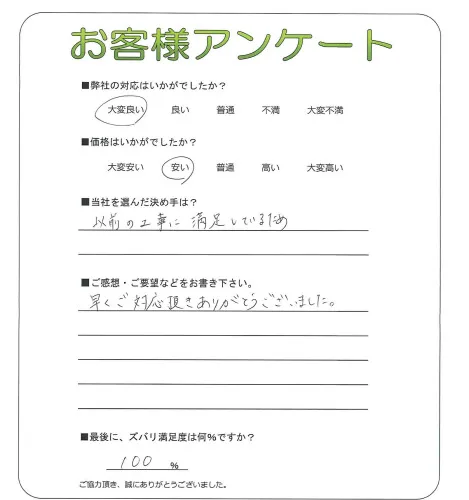 お客様アンケート
■弊社の対応はいかがでしたか？
大変良い 良い 普通 不満 大変不満
■価格はいかがでしたか？
大変安い 安い 普通 高い 大変高い
■当社を選んだ決め手は？
以前の工事に満足しているため
■ご感想・ご要望などをお書き下さい。
早くご対応頂きありがとうございました。
■最後に、ズバリ満足度は何%ですか？
100 %
ご協力頂き、誠にありがとうございました。